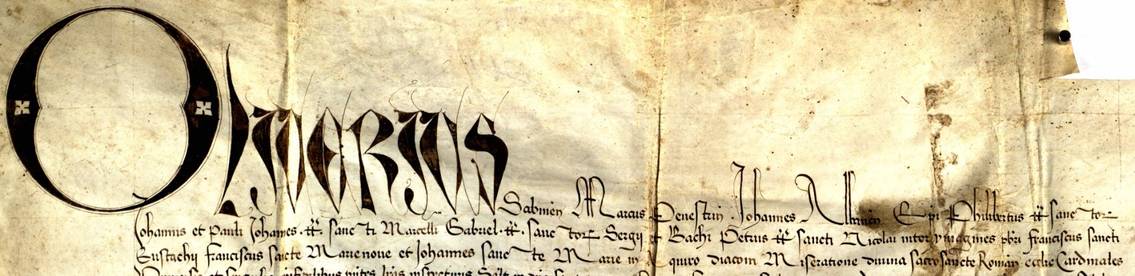 Oliverius Sabinen Marcus Penestrin Johannes Albanen Epi Philibertus tt sanctor
Johannis et Pauli Johannes tt sancti Marcelli Gabriel tt sanctor Sergij et Bachi Petrus tt sancti Nicolai inter ymagines pbri franciscus sancti
Eustachij franciscus sancte Marie noue et Johannes sancte Marie in aquiro diaconi Miseratione diuina sacrosancte Romane ecclie Cardinales